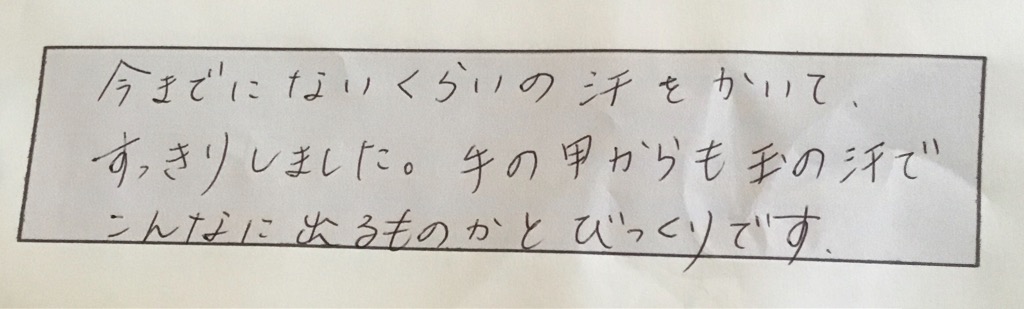 今までにないくらいの汗をかいて、
すっきりしました。手の甲からも玉の汗で
こんなに出るものかとびっくりです.